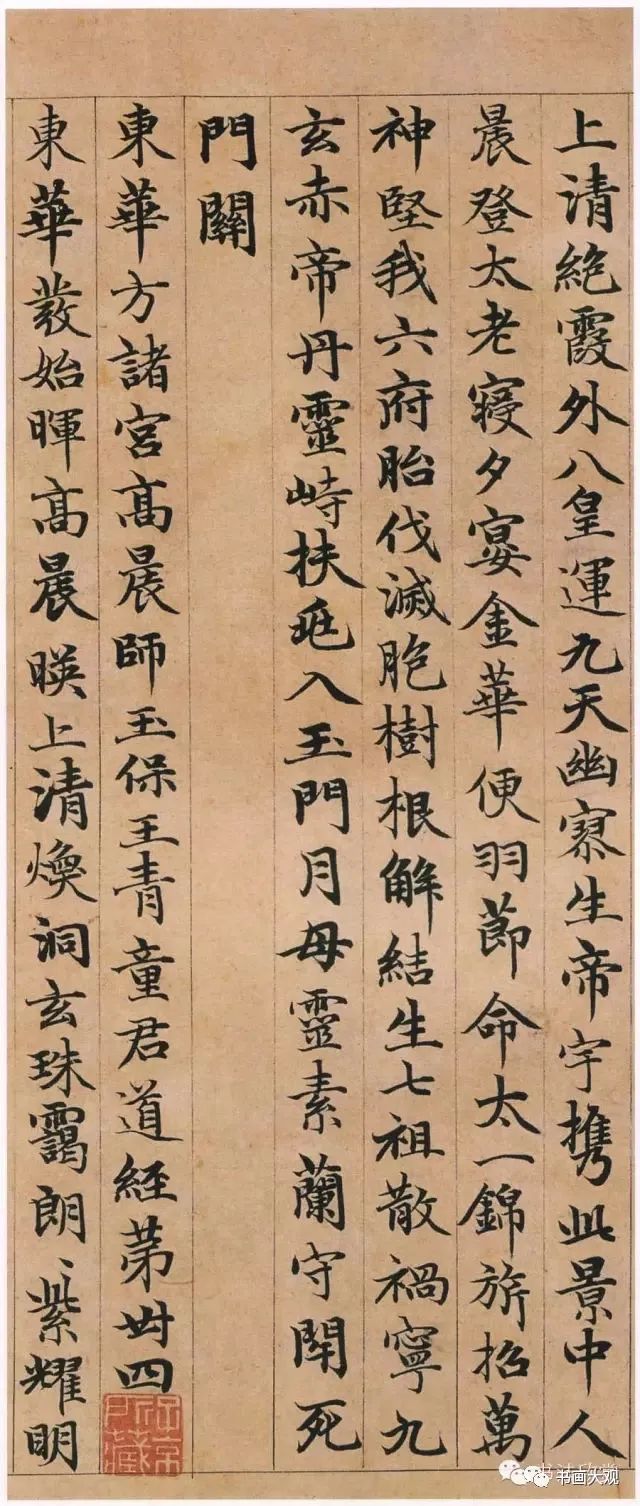 上清絶霞外八皇運九天幽寥生帝宇携此景中人
晨登太老寢夕宴金華便羽節命太一錦旂招萬
神堅我六府胎伐滅胞樹根解結生七祖散禍寧九
玄赤帝丹靈峙扶𨒫入玉門月母靈素蘭守閇死
門關
東華方諸宮高晨師玉保王青童君道經第卌四
東華發始暉高晨暎上清煥洞玄珠靄朗〻紫耀明
书画大观